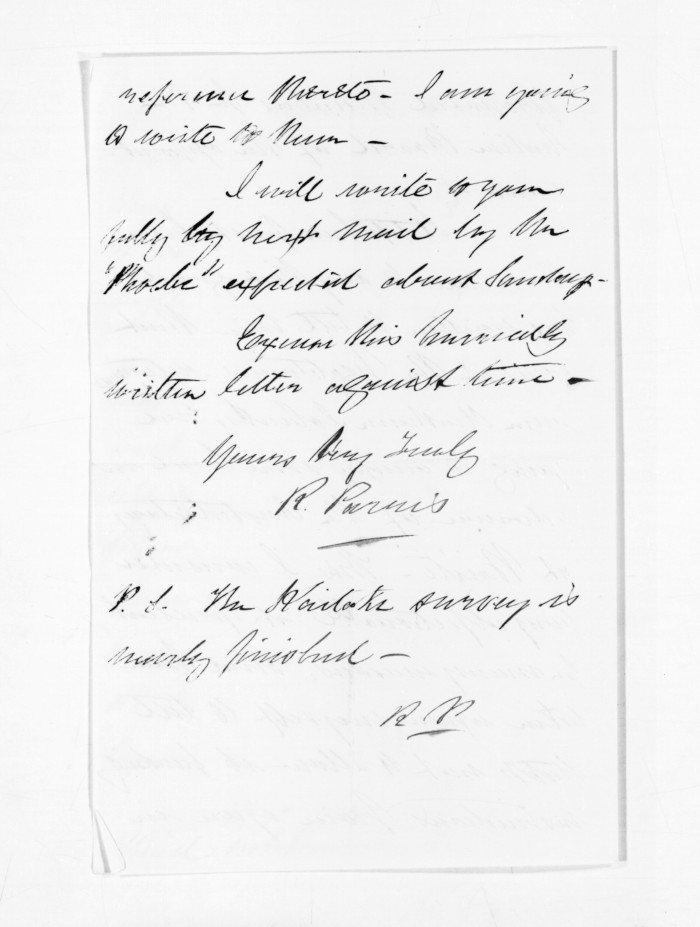 reference thereto – I am going
to write to them –
I will write to you
fully by next mail by the
"Phoebe" expected about Sunday –
Excuse this hurriedly
written letter against time –
Yours Very Truly
R. Parris
P. S. The Kaitake survey is
nearly finished –
R P